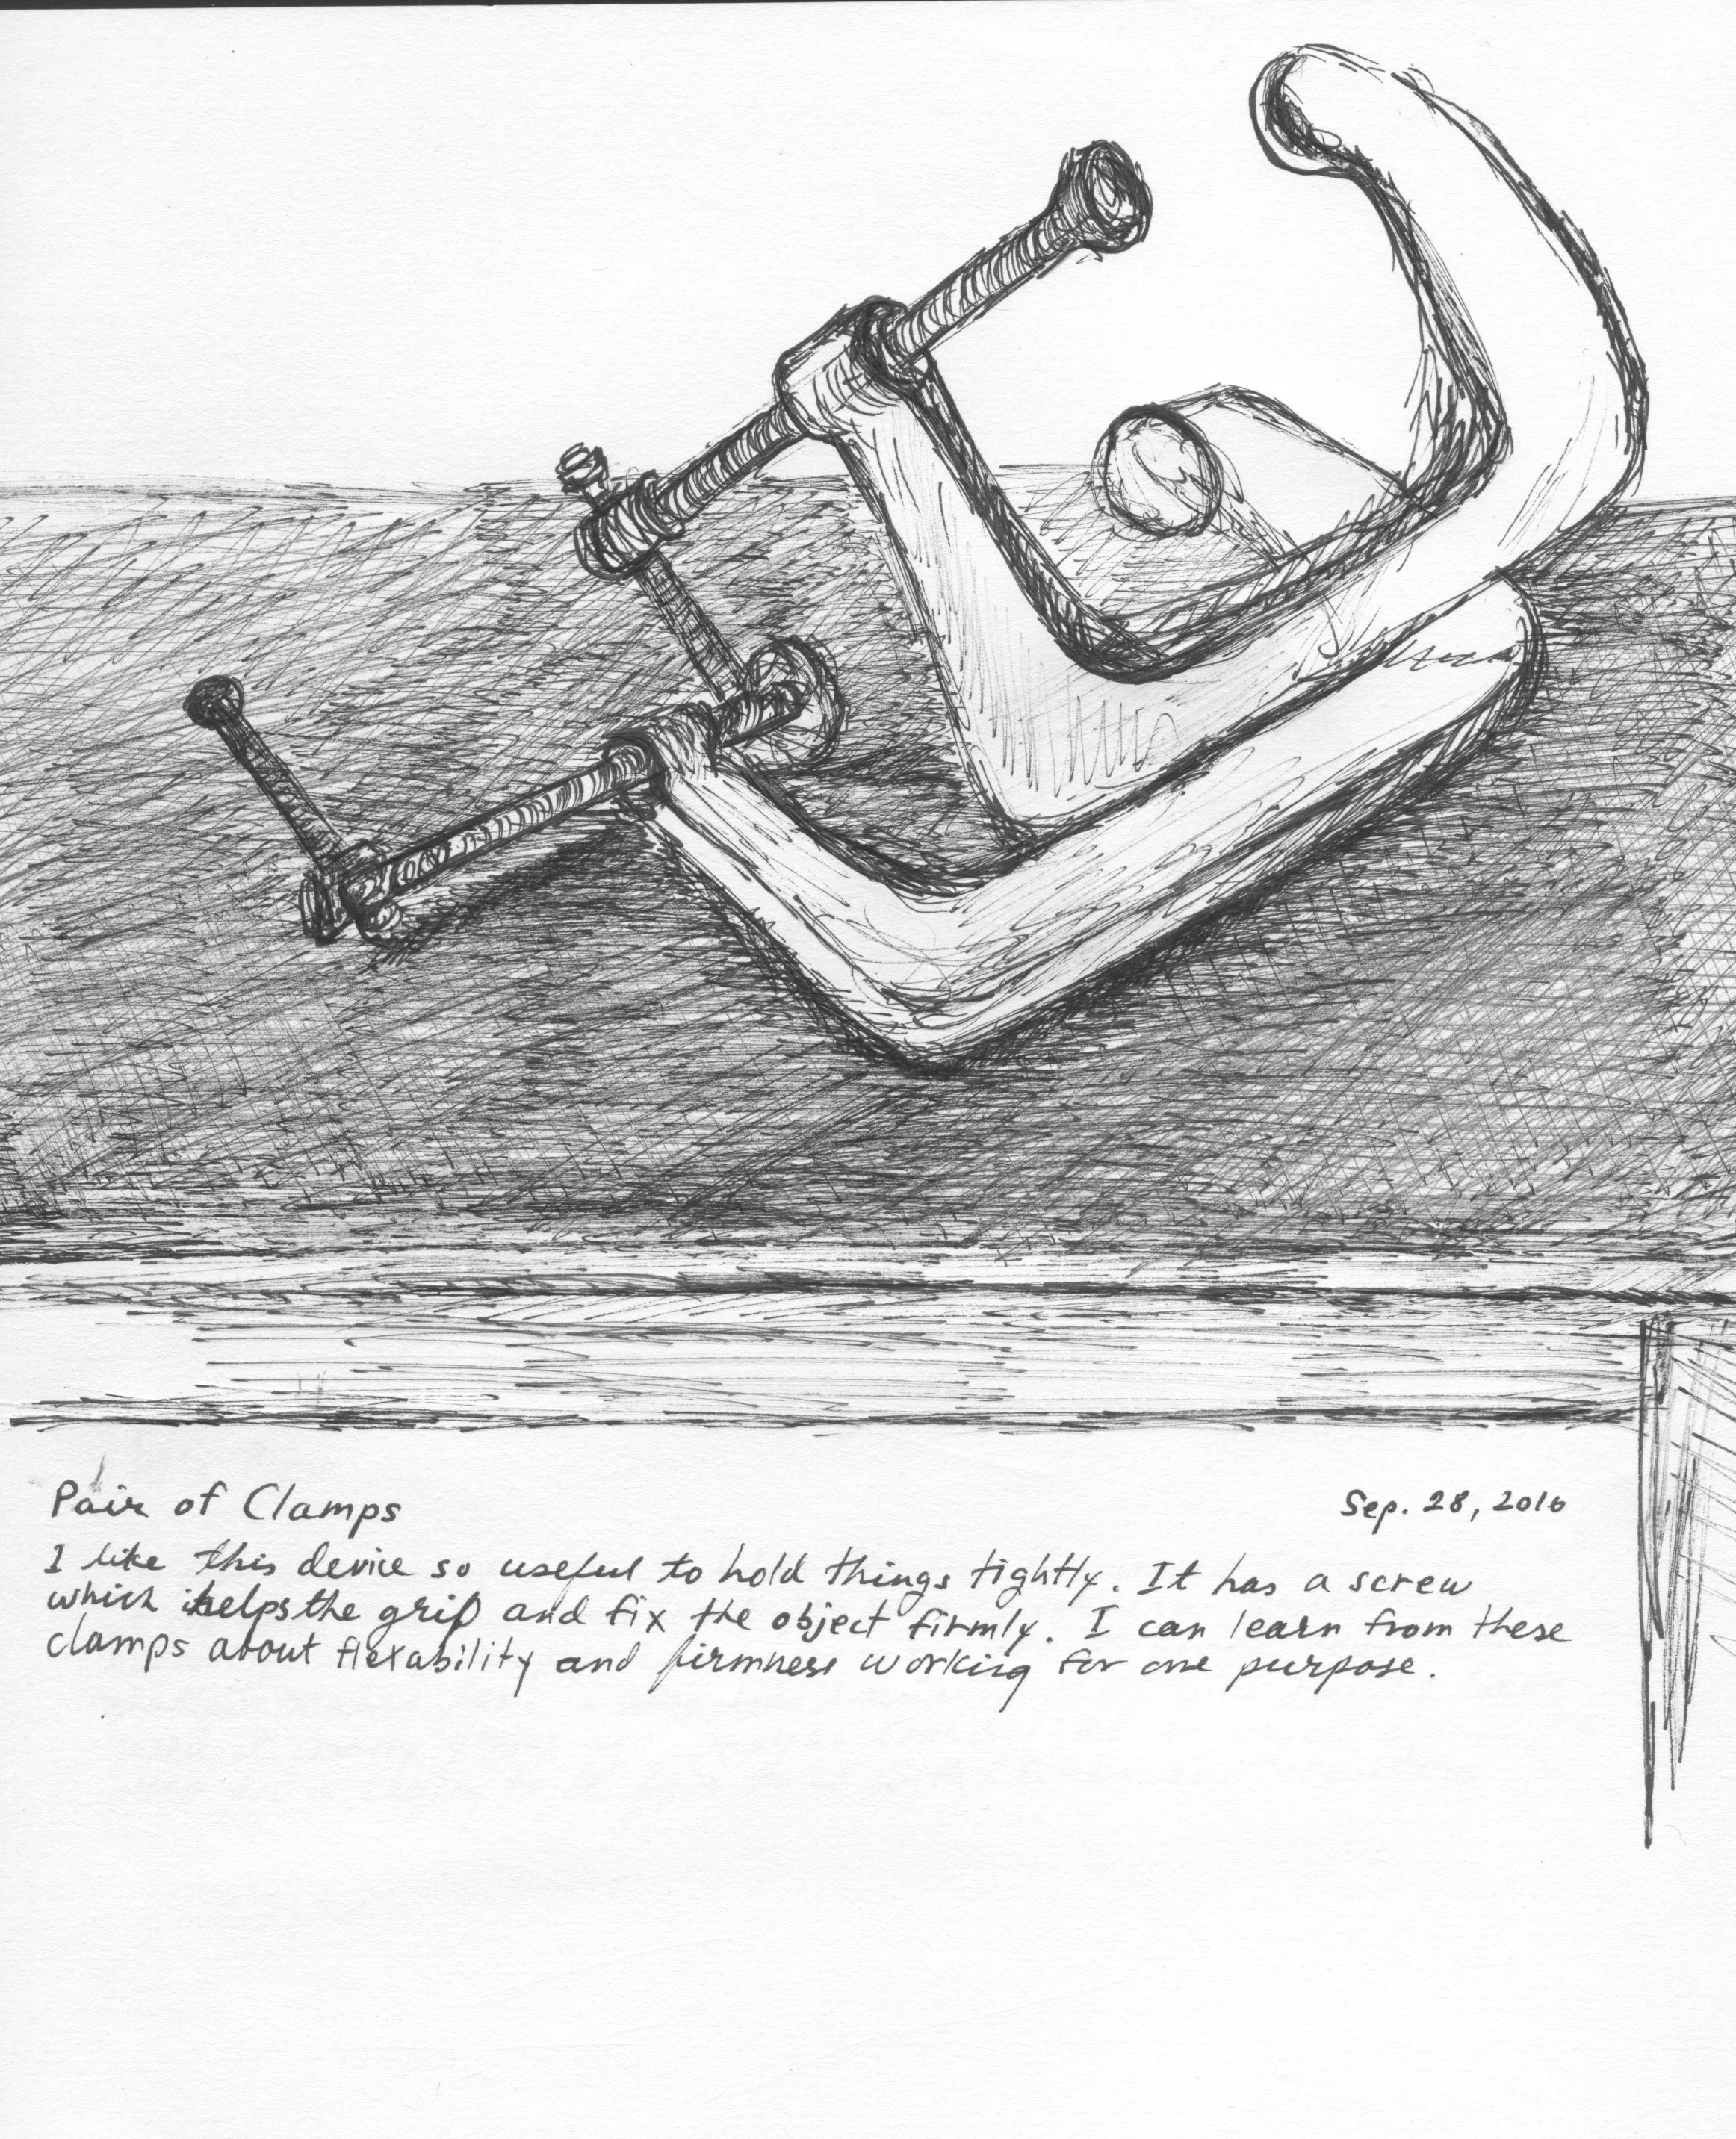 Pair of Clamps
Sep. 28, 2016
I like this device so useful to hold things tightly. It has a screw
which helps the grip and fix the object firmly. I can learn from these
clamps about flexability and firmness working for one purpose.